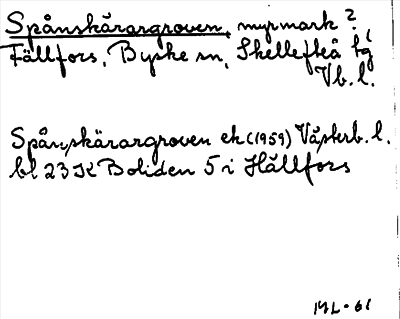 Spånskärargroven, myrmark?
Fällfors, Byske sn, Skellefteå tg
Vb. l.
Spånskärargroven ek (1959) Västerb. l.
bl 23 K Boliden 5 i Hällfors